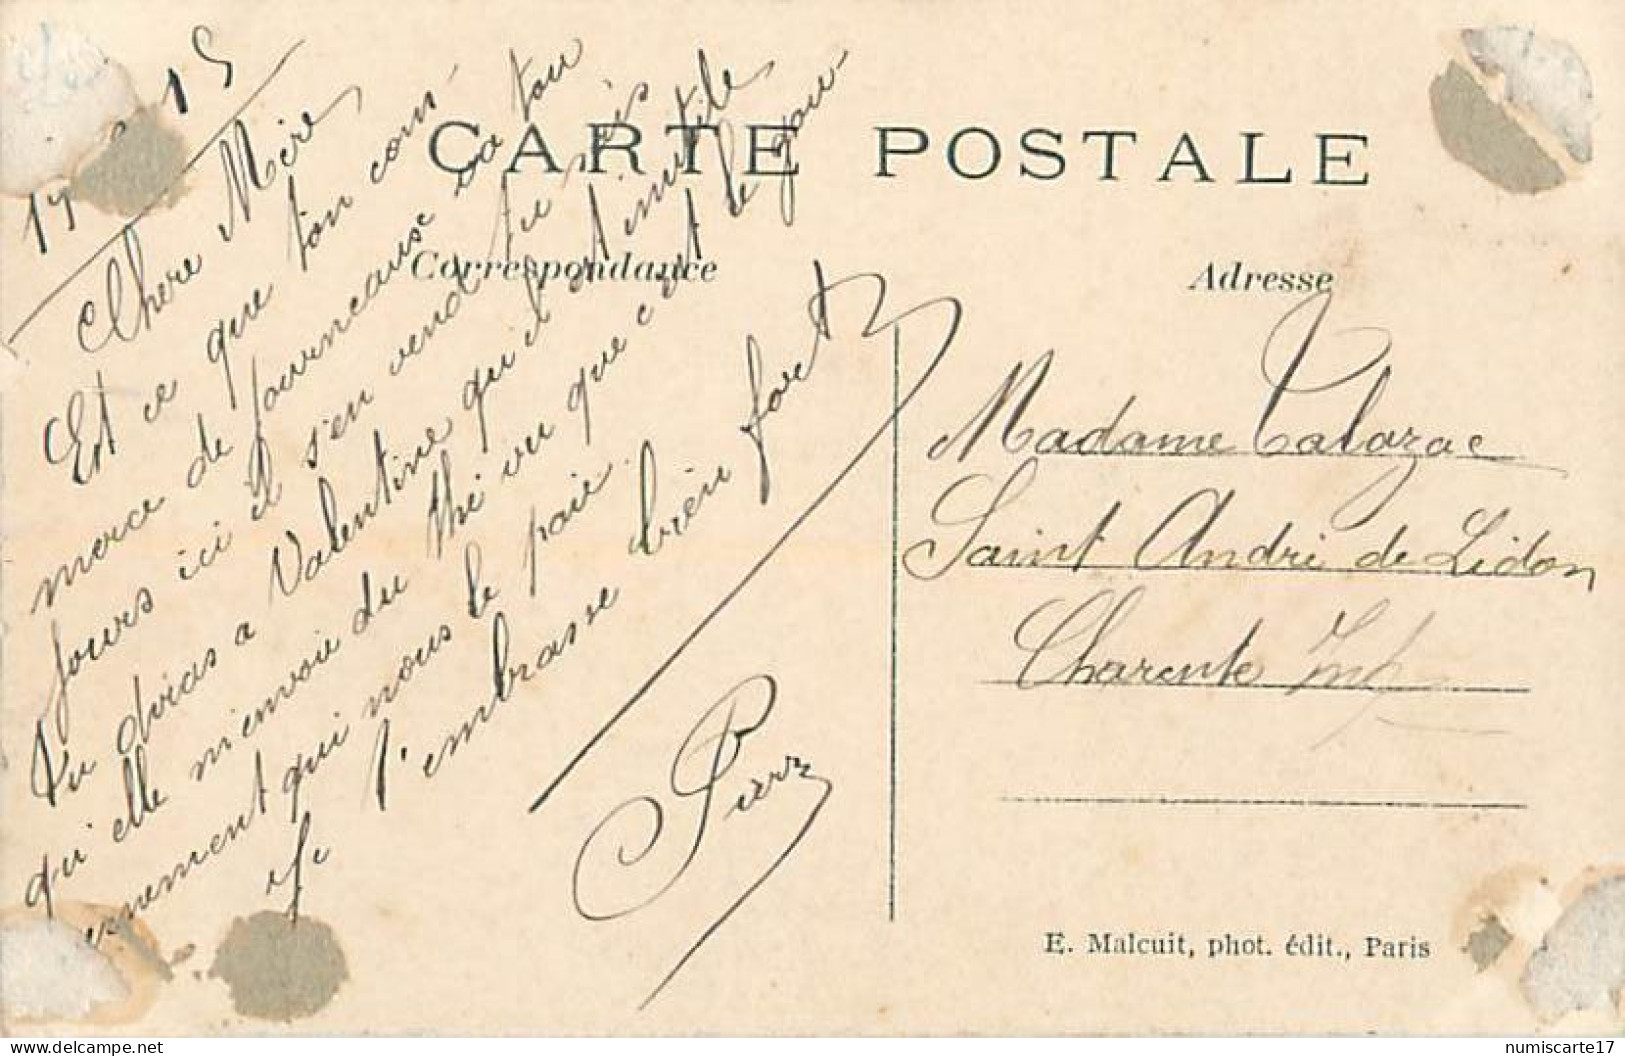 CARTE POSTALE
Correspondance
Adresse
15
Chere Mère
Est ce que ton com-
merce de fourneaux va tou
jours ici il s'en vend tu
Tu diras a Valentine qu'il est inutile
qu'elle m'envoie du thé vu que c'est le gou-
vernement qui nous le paie.
Je t'embrasse bien fort
Pierre
Madame Calazac
Saint André de Lidon
Charente Inf
E. Malcuit, phot. édit., Paris
delcampe.net
numiscarte17